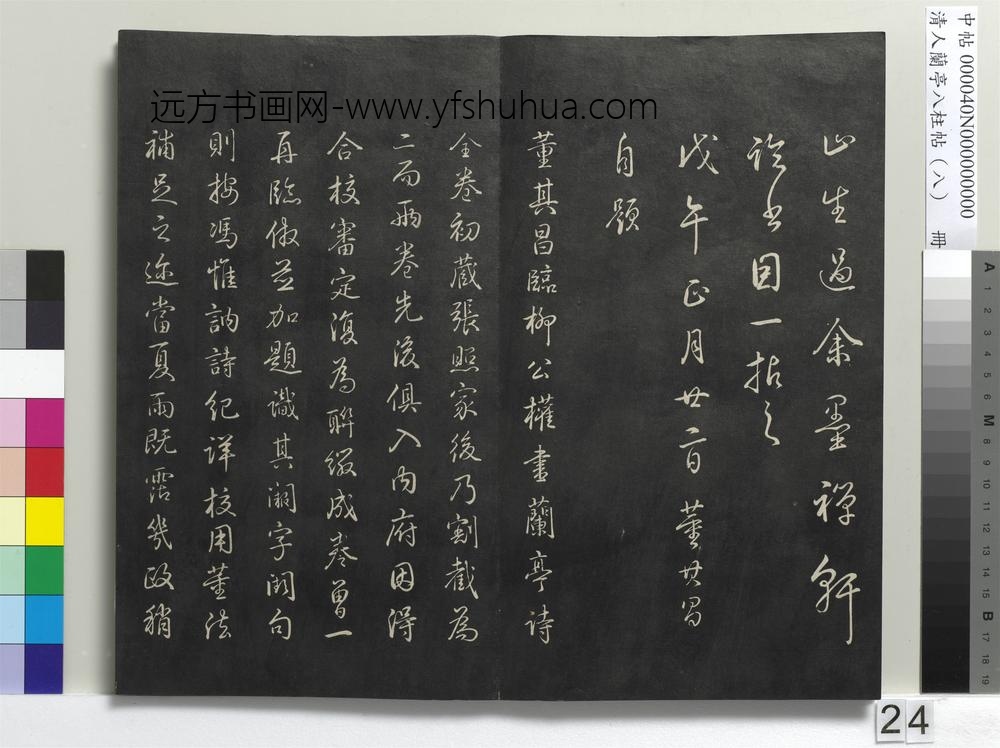 山生過余墨禪軒
論書因一拈之
戊午正月廿二日董其昌
自題
董其昌臨柳公權書蘭亭詩
全卷初藏張照家後乃割截為
二而兩卷先後俱入內府因得
合校審定復為聯綴成卷曾一
再臨倣並加題識其闕字闕句
則按馮惟訥詩紀詳校用董法
補足之迩當夏雨既霑幾政稍
远方书画网-www.yfshuhua.com
中帖 000040N000000000
清人蘭亭八柱帖（八） 冊
A 1 2 3 4 5 6 M 8 9 10 11 12 13 14 15 B 17 18 19
24